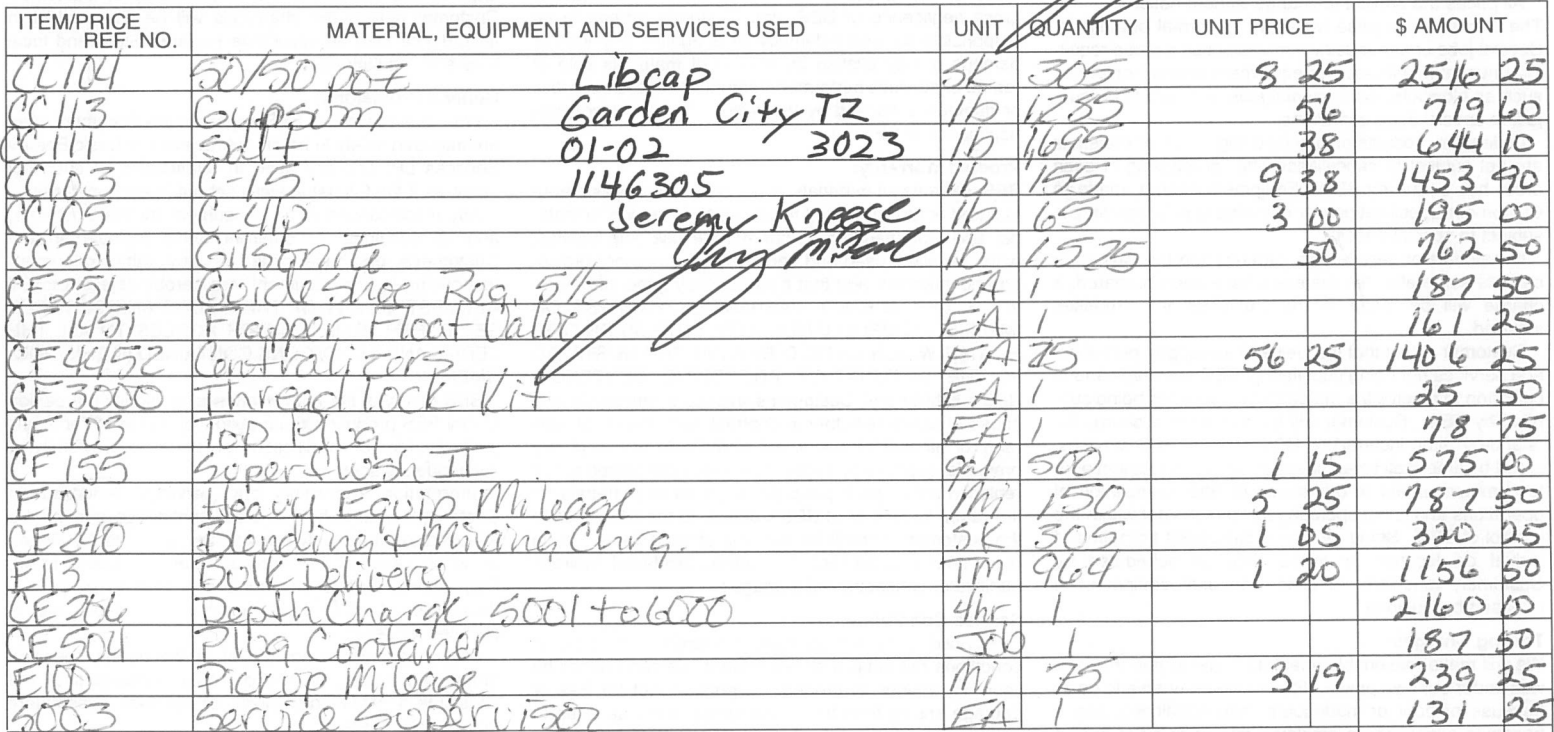 ITEM/PRICE REF. NO. MATERIAL, EQUIPMENT AND SERVICES USED UNIT QUANTITY UNIT PRICE $ AMOUNT
CL104 50/50 poz Libcap SK 305 8 25 2516 25
CC113 Gypsum Garden City TZ lb 1,285 56 719 60
CC111 Salt 01-02 3023 lb 1,695 38 644 10
CC103 C-15 1146305 lb 155 9 38 1453 90
CC105 C-41p Jeremy Kneese lb 65 3 00 195 00
CC201 Gilsonite lb 1,525 50 762 50
CF251 Guide Shoe Reg. 5½ EA 1 187 50
CF1451 Flapper Float Valve EA 1 161 25
CF4452 Centralizers EA 25 56 25 1406 25
CF3000 Thread lock Kit EA 1 25 50
CF103 Top Plug EA 1 78 75
CF155 Super flush II gal 500 1 15 575 00
E101 Heavy Equip Mileage Mi 150 5 25 787 50
CE240 Blending + Mixing Chrg. SK 305 1 05 320 25
E113 Bulk Delivery TM 964 1 20 1156 50
CE206 Depth Charge 5001 to 6000 4hr 1 2160 00
CE504 Plug Container Job 1 187 50
E100 Pickup Mileage Mi 75 3 19 239 25
S003 Service Supervisor EA 1 131 25